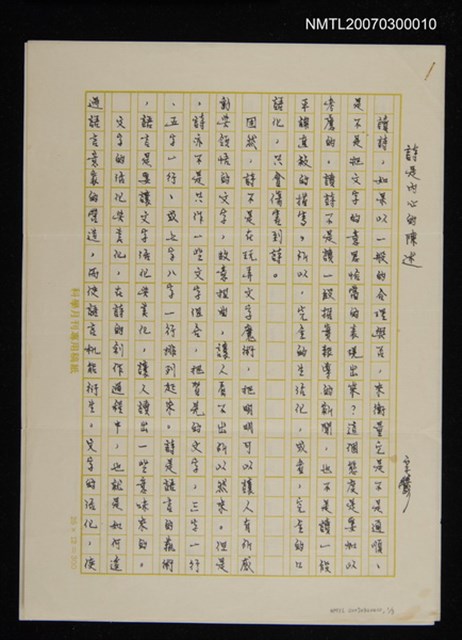 NMTL20070300010
詩是內心的陳述
讀詩，如果以一般的合理與否，來衡量它是不是通順，
是不是把文字的意思恰當的表現出來？這個態度是要加以
考慮的。讀詩不是讀一般報導的新聞，也不是讀一般
平鋪直敘的描寫。所以，完全的生活化，或者，完全的口
語化，只會傷害到詩。
固然，詩不是在玩弄文字魔術，把明明可以讓人有所感
動與領悟的文字，故意扭曲，讓人看不出所以然來。但是
，詩亦不是只作一些文字組合，把習見的文字，三字一行
、五字一行、或七字八字一行排列起來。詩是語言的藝術
，語言是要讓文字活化與美化，讓人讀出一些意味來的。
文字的活化與美化，在詩的創作過程中，也就是如何透
過語言意象的塑造，而使語言机能衍生。文字的活化，使
科學月刊專用稿紙
NMTL 20070300010, 1/3